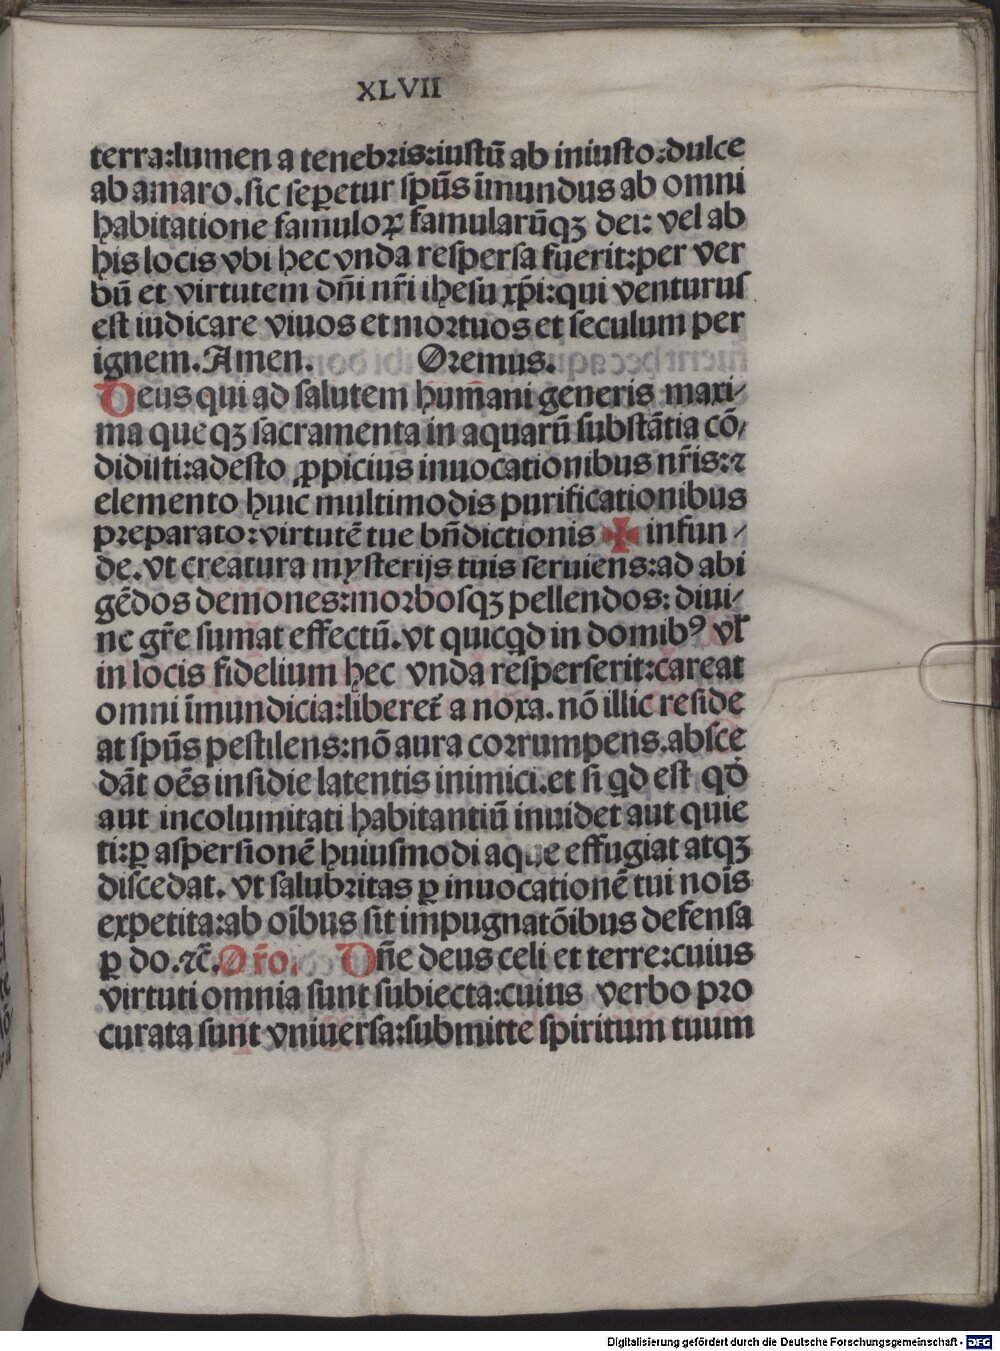 XLVII
terra:lumen a tenebꝛis:iustū ab iniusto:dulce
ab amaro.sic seꝑetur spūs īmundus ab omni
habitatione famuloꝝ famularūqꝫ dei: vel ab
his locis vbi hec vnda respersa fuerit:per ver
bū et virtutem dn̄i nr̄i ihesu xp̄i:qui venturus
est iudicare viuos et moꝛtuos et seculum per
ignem.Amen. Oꝛemus.
Deus qui ad salutem hum̄ani generis maxi⸗
ma queqꝫ sacramenta in aquarū substātia cō⸗
didisti:adesto ꝓpicius inuocationibus nr̄is:⁊
elemento huic multimodis purificationibus
pꝛeparato:virtutē tue bn̄dictionis ✠ infun⸗
de.vt creatura mysterijs tuis seruiens:ad abi
gēdos demones:moꝛbosqꝫ pellendos: diui⸗
ne gr̄e sumat effectū.vt quicqd in domibꝰ vl̄
in locis fidelium hec vnda resperserit:careat
omni īmundicia:liberet̄ a noxa.nō illic reside
at spūs pestilens:nō aura coꝛrumpens.absce
dāt oēs insidie latentis inimici.et si qd est qd̓
aut incolumitati habitantiū inuidet aut quie
ti:ꝑ aspersionē huiusmodi aque effugiat atqꝫ
discedat. vt salubꝛitas ꝑ inuocationē tui nois̄
expetita:ab oībus sit impugnatōibus defensa
ꝑ do.⁊c̄.Or̄o. Dn̄e deus celi et terre:cuius
virtuti omnia sunt subiecta:cuius verbo pꝛo
curata sunt vniuersa:submitte spiritum tuum
Digitalisierung gefördert durch die Deutsche Forschungsgemeinschaft - DFG